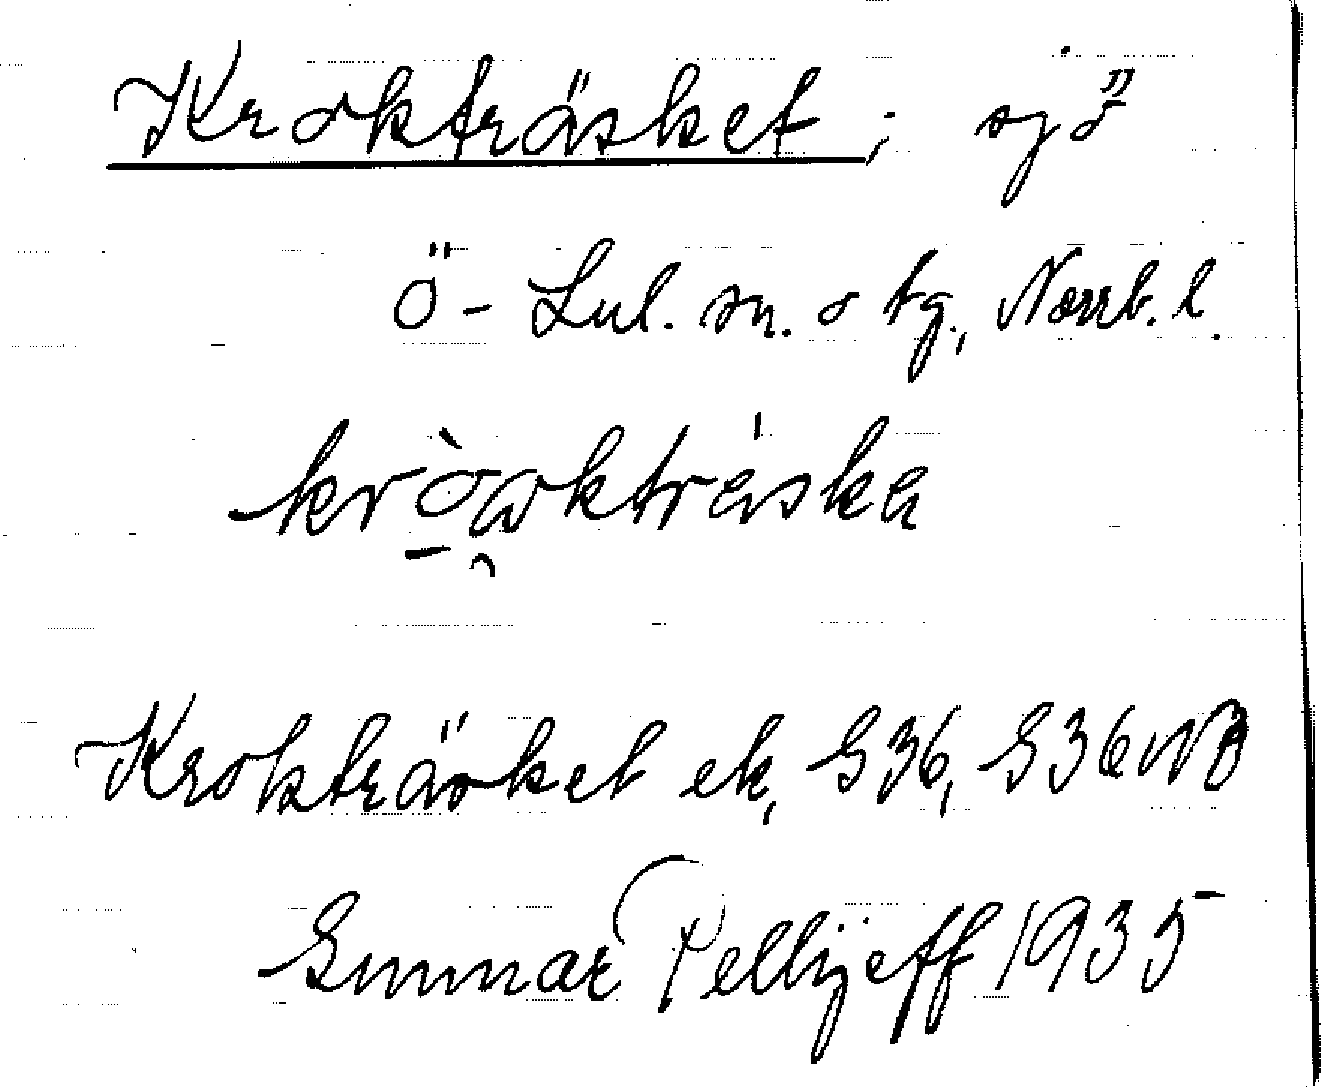 Krokträsket; sjö
Ö-Lul. sn. o tg., Norrb. l.
Krokträsket ek, G36, G36NB
Gunnar Pellijeff 1935